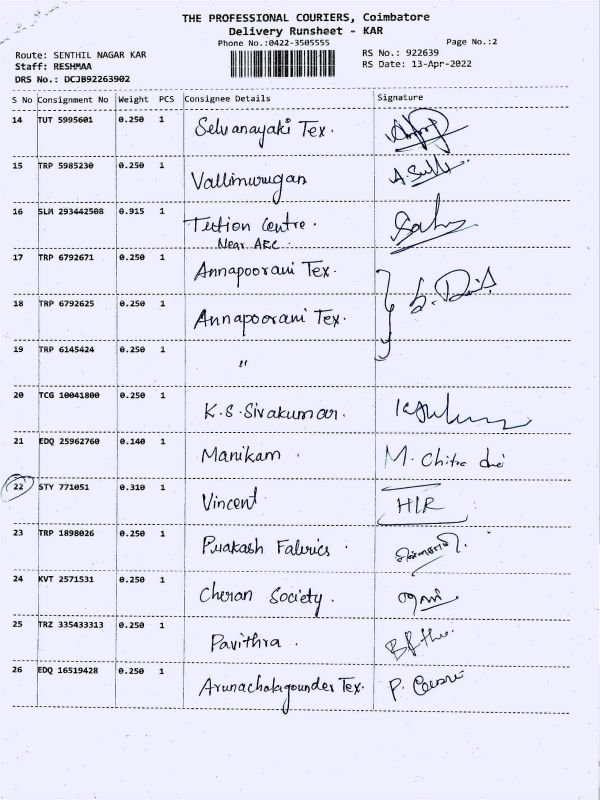 THE PROFESSIONAL COURIERS, Coimbatore
Delivery Runsheet - KAR
Phone No.:0422-3505555
Page No.:2
Route: SENTHIL NAGAR KAR
RS No.: 922639
Staff: RESHMAA
RS Date: 13-Apr-2022
DRS No.: DCJB92263902
S No Consignment No Weight PCS Consignee Details Signature
14 TUT 5995601 0.250 1 Selvanayaki Tex.
15 TRP 5985230 0.250 1 Vallimurugan
16 SLM 293442508 0.915 1 Tution Centre.
Near ABC.
17 TRP 6792671 0.250 1 Annapoorani Tex.
18 TRP 6792625 0.250 1 Annapoorani Tex.
19 TRP 6145424 0.250 1 "
20 TCG 10041800 0.250 1 K.S.Sivakumar.
21 EDQ 25962760 0.140 1 Manikam. M. Chitra
22 STY 771051 0.310 1 Vincent HIR
23 TRP 1898026 0.250 1 Prakash Fabrics.
24 KVT 2571531 0.250 1 Cheran Society.
25 TRZ 335433313 0.250 1 Pavithra.
26 EDQ 16519428 0.250 1 Arunachalagounder Tex.